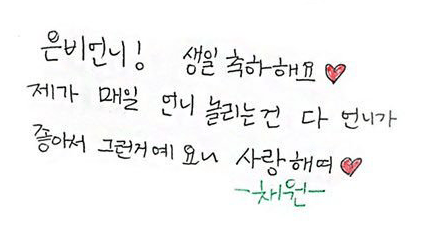 은비언니! 생일 축하해요♥
제가 매일 언니 놀리는건 다 언니가
좋아서 그런거예요ㅠ 사랑해여♥
-채원-